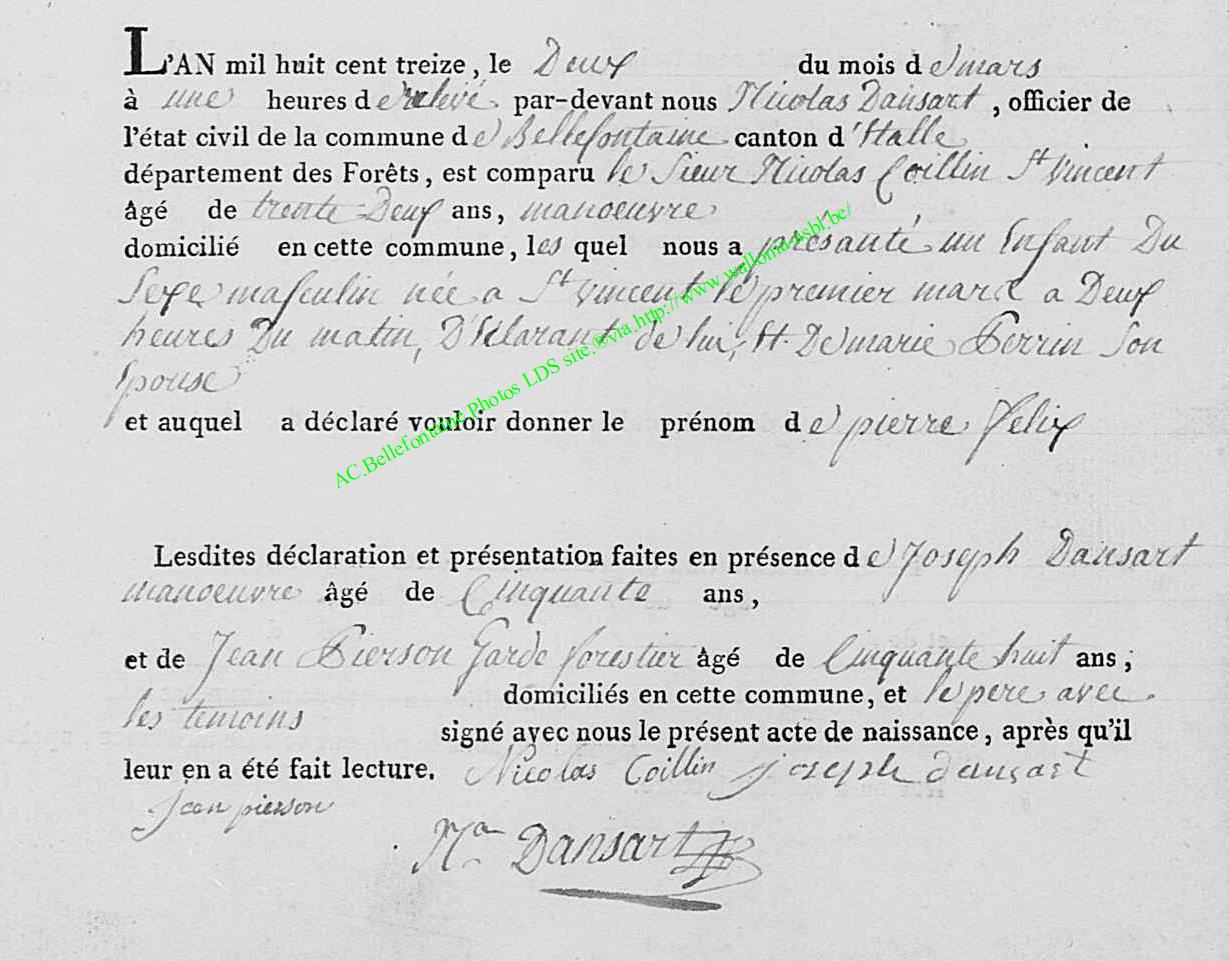 L'AN mil huit cent treize, le Deux du mois de mars
à une heures de relevé par-devant nous Nicolas Dansart, officier de
l'état civil de la commune de Bellefontaine canton d'Etalle
département des Forêts, est comparu le Sieur Nicolas Coillin St Vincent
âgé de trente-Deux ans, manoeuvre
domicilié en cette commune, les quel nous a présanté un Enfant Du
Sexe masculin née a St vincent le premier mars a Deux
heures Du matin, D'Élarant de lui, Et De marie Perrin Son
Epouse
et auquel a déclaré vouloir donner le prénom de pierre felix
AC.Bellefontaine Photos LDS site.®via.http://www.wallonia-asbl.be/
Lesdites déclaration et présentation faites en présence de Joseph Dansart
manoeuvre âgé de Cinquante ans,
et de Jean Pierson Garde forestier âgé de Cinquante huit ans;
domiciliés en cette commune, et le pere avec
les temoins signé avec nous le présent acte de naissance, après qu'il
leur en a été fait lecture. Nicolas Coillin joseph dansart
jean pierson
Nas Dansart